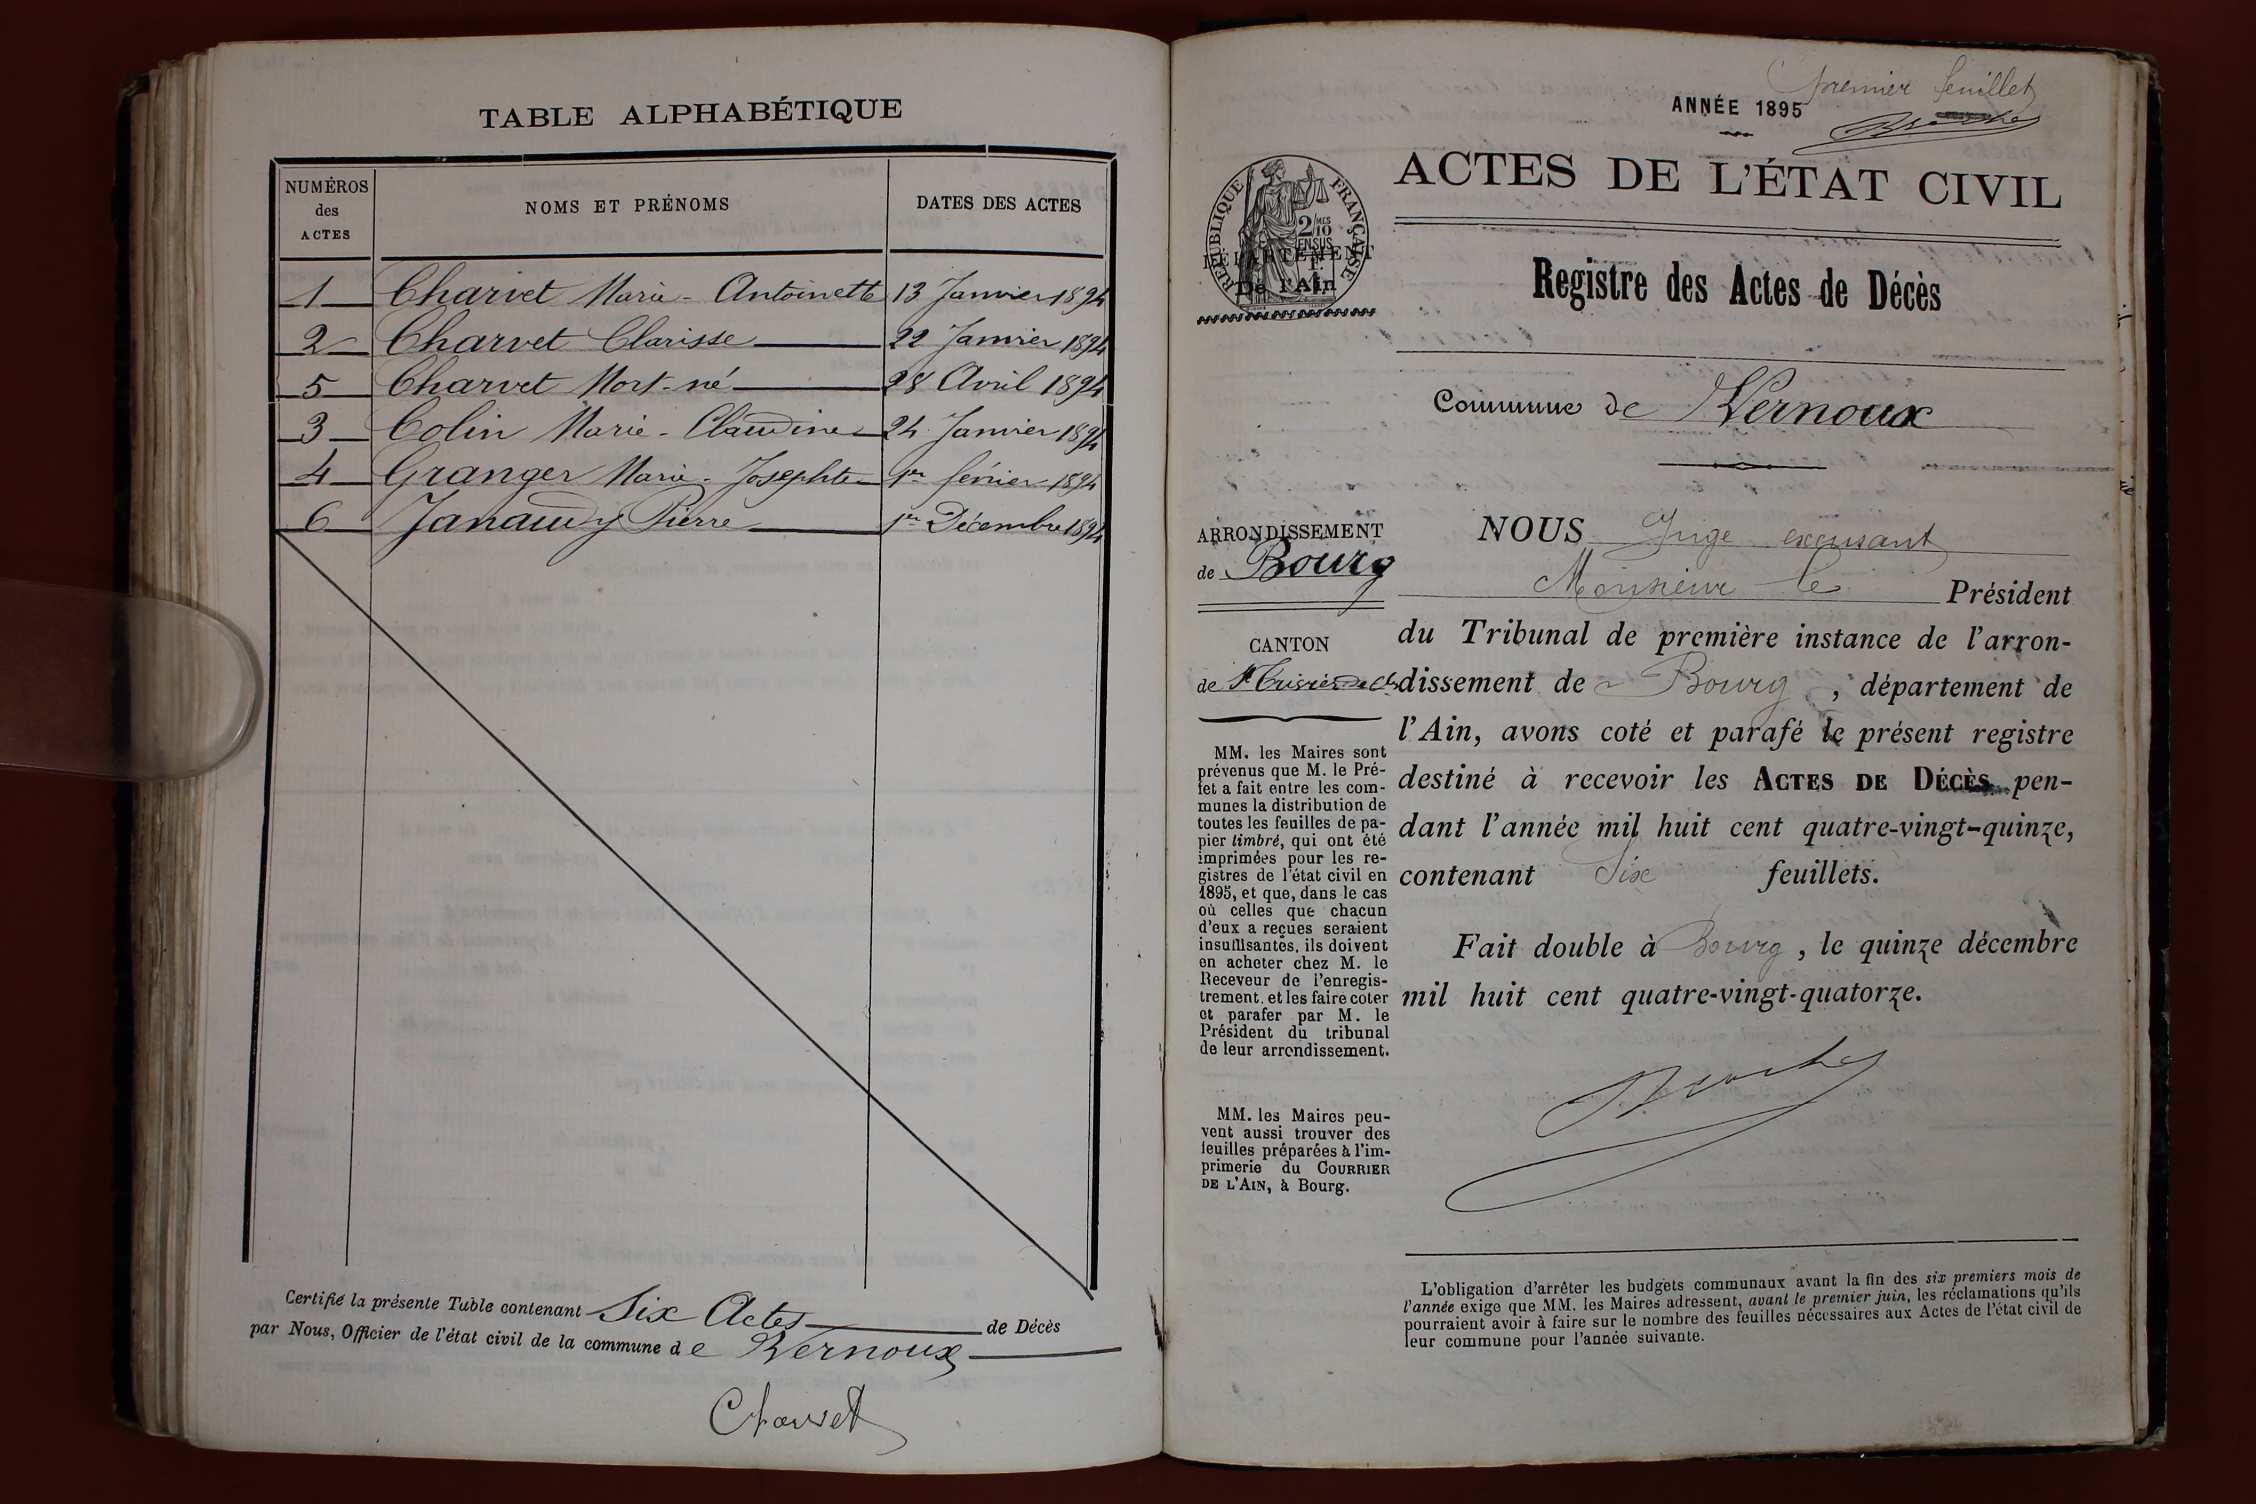 TABLE ALPHABÉTIQUE
NUMÉROS
des
ACTES
NOMS ET PRÉNOMS
DATES DES ACTES
1 Charvet Marie-Antoinette 13 Janvier 1894
2 Charvet Clarisse 22 Janvier 1894
5 Charvet Mort-né 28 Avril 1894
3 Colin Marie-Claudine 24 Janvier 1894
4 Granger Marie-Josephte 1er février 1894
6 Janaudy Pierre 1er Décembre 1894
Certifié la présente Table contenant Six Actes de Décès
par Nous, Officier de l'état civil de la commune de Vernoux
Charvet
premier feuillet
ANNÉE 1895
ACTES DE L'ÉTAT CIVIL
RÉPUBLIQUE FRANÇAISE
2/10 MES
EN SUS
DÉPARTEMENT
De l'Ain
Registre des Actes de Décès
Commune de Vernoux
ARRONDISSEMENT
de Bourg
CANTON
de St Trivier de Cts
MM. les Maires sont
prévenus que M. le Pré-
fet a fait entre les com-
munes la distribution de
toutes les feuilles de pa-
pier timbré, qui ont été
imprimées pour les re-
gistres de l'état civil en
1895, et que, dans le cas
où celles que chacun
d'eux a reçues seraient
insuffisantes, ils doivent
en acheter chez M. le
Receveur de l'enregis-
trement, et les faire coter
et parafer par M. le
Président du tribunal
de leur arrondissement.
MM. les Maires peu-
vent aussi trouver des
feuilles préparées à l'im-
primerie du COURRIER
DE L'AIN, à Bourg.
NOUS Juge excusant
Monsieur le Président
du Tribunal de première instance de l'arron-
dissement de Bourg, département de
l'Ain, avons coté et parafé le présent registre
destiné à recevoir les ACTES DE DÉCÈS pen-
dant l'année mil huit cent quatre-vingt-quinze,
contenant Six feuillets.
Fait double à Bourg, le quinze décembre
mil huit cent quatre-vingt-quatorze.
L'obligation d'arrêter les budgets communaux avant la fin des six premiers mois de
l'année exige que MM. les Maires adressent, avant le premier juin, les réclamations qu'ils
pourraient avoir à faire sur le nombre des feuilles nécessaires aux Actes de l'état civil de
leur commune pour l'année suivante.